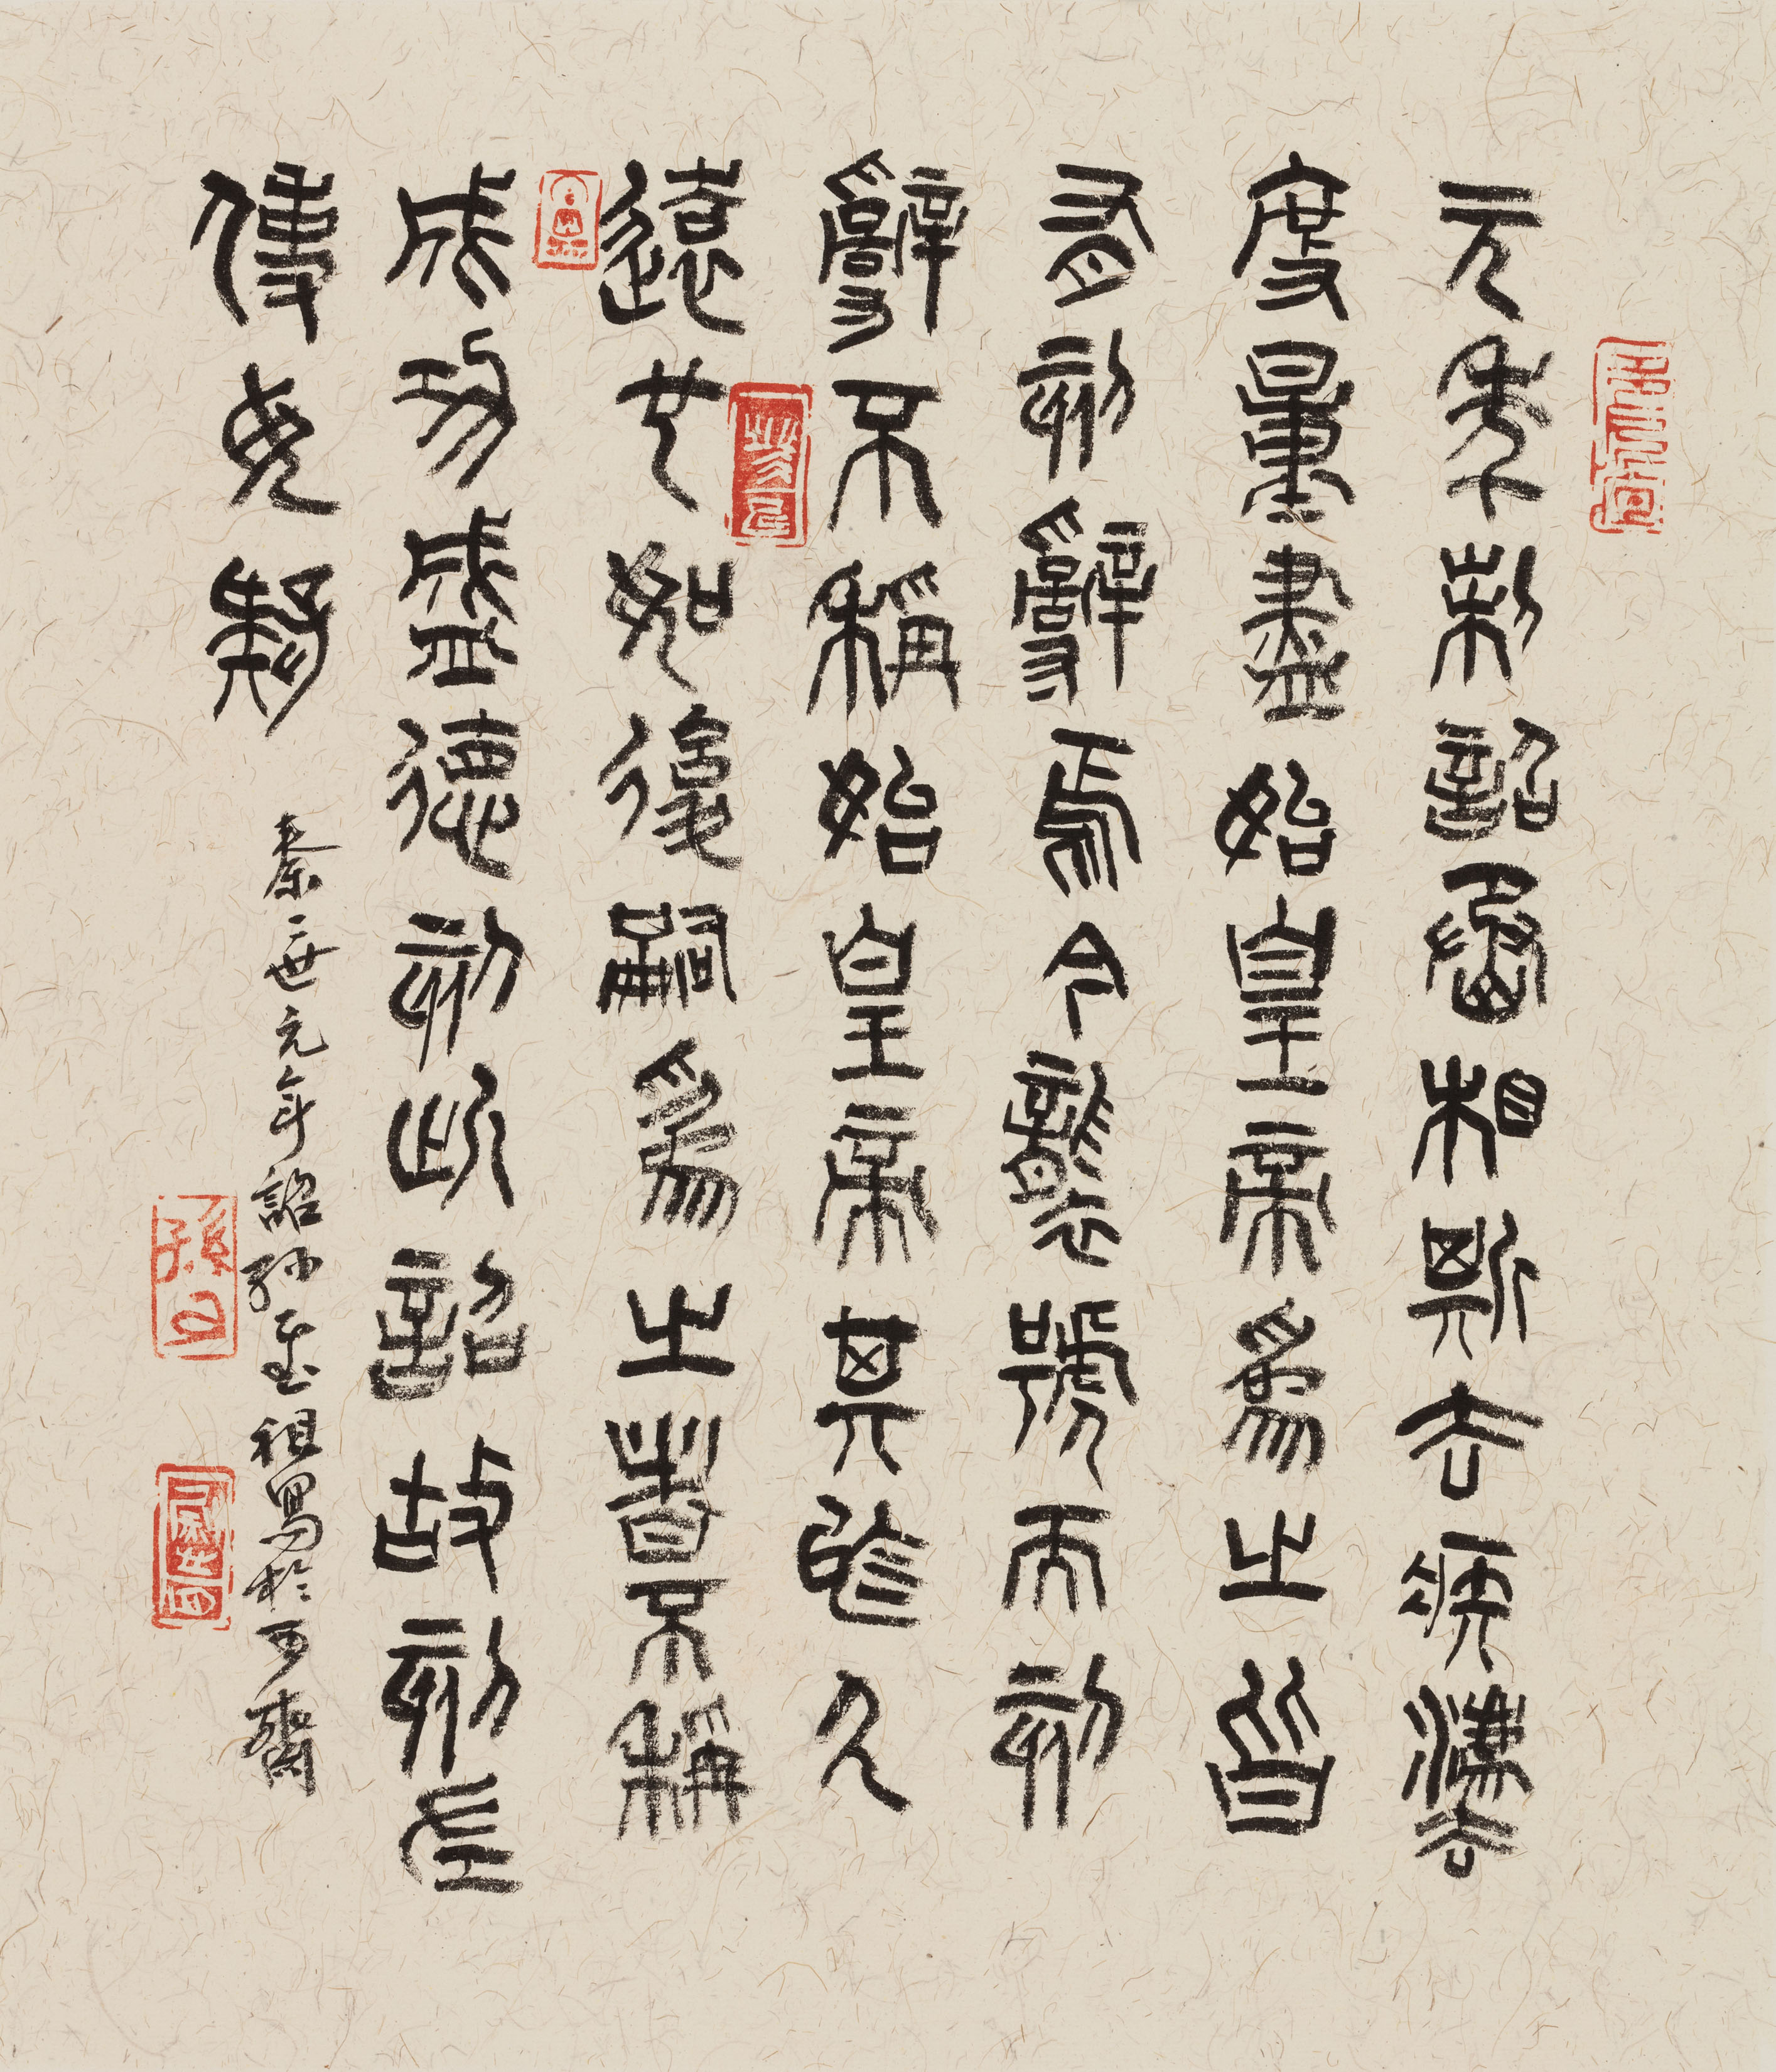 元年制詔丞相斯去疾灋
度量盡始皇帝爲之皆
有刻辭焉今襲號而刻
辭不稱始皇帝其於久
遠也如後嗣爲之者不稱
成功盛德刻此詔故刻左
使毋疑
秦二世元年詔孫祖寫於齋